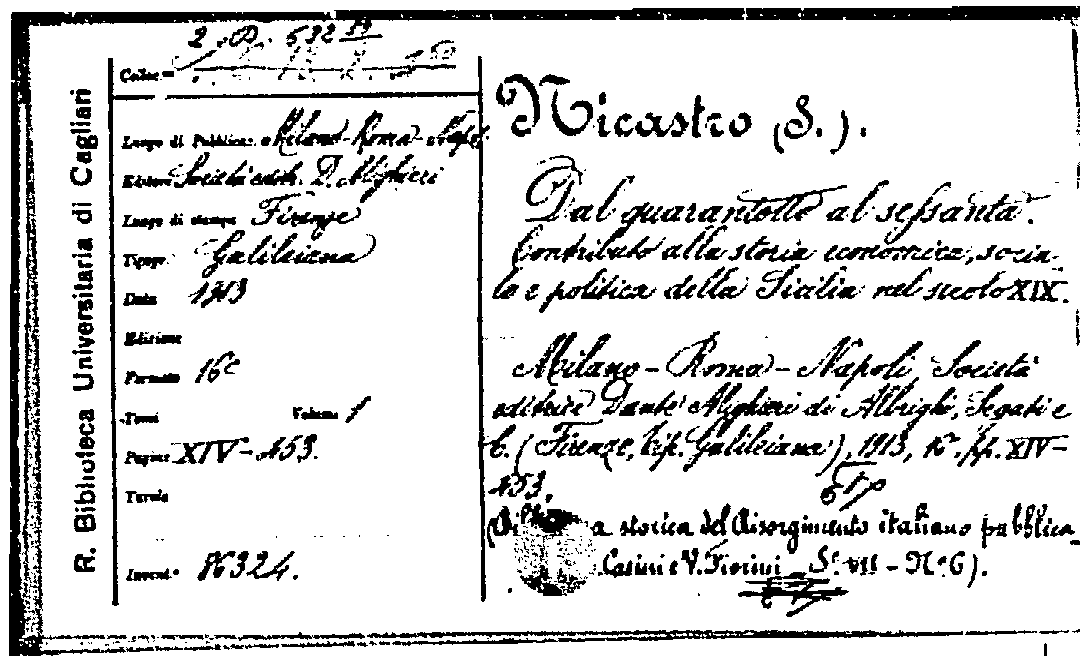 R. Biblioteca Universitaria di Cagliari
2. D. 532 59
Colloc.
Luogo di Pubblicaz. Milano-Roma-Napoli
Editore Società edit. D. Alighieri
Luogo di stampa Firenze
Tipogr. Galileiana
Data 1913
Edizione
Formato 16º
Tomi Volume 1
Pagine XIV-453.
Tavole
Invent.
Nicastro (S.).
Dal quarantotto al sessanta.
Contributo alla storia economica, socia-
le e politica della Sicilia nel secolo XIX.
Milano-Roma-Napoli, Società
editrice Dante Alighieri di Albrighi, Segati e
C. (Firenze, tip. Galileiana), 1913, 16º, pp. XIV-
453.
storica del Risorgimento italiano pubblica
Casini e V. Fiorini _ S. VII - Nº 6).